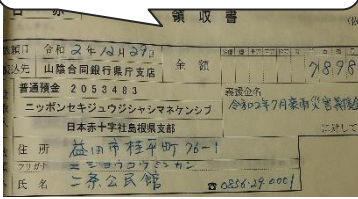 領収書
令和2年12月29日
山陰合同銀行県庁支店
金額
普通預金 2053483
ニッポンセキジュウジシャシマネケンシブ
日本赤十字社島根県支部
義援金名
令和2年7月豪雨災害義援金
住所 益田市桂平町76-1
フリガナ ニジョウコウミンカン
氏名 二条公民館
☎0856-29-0001